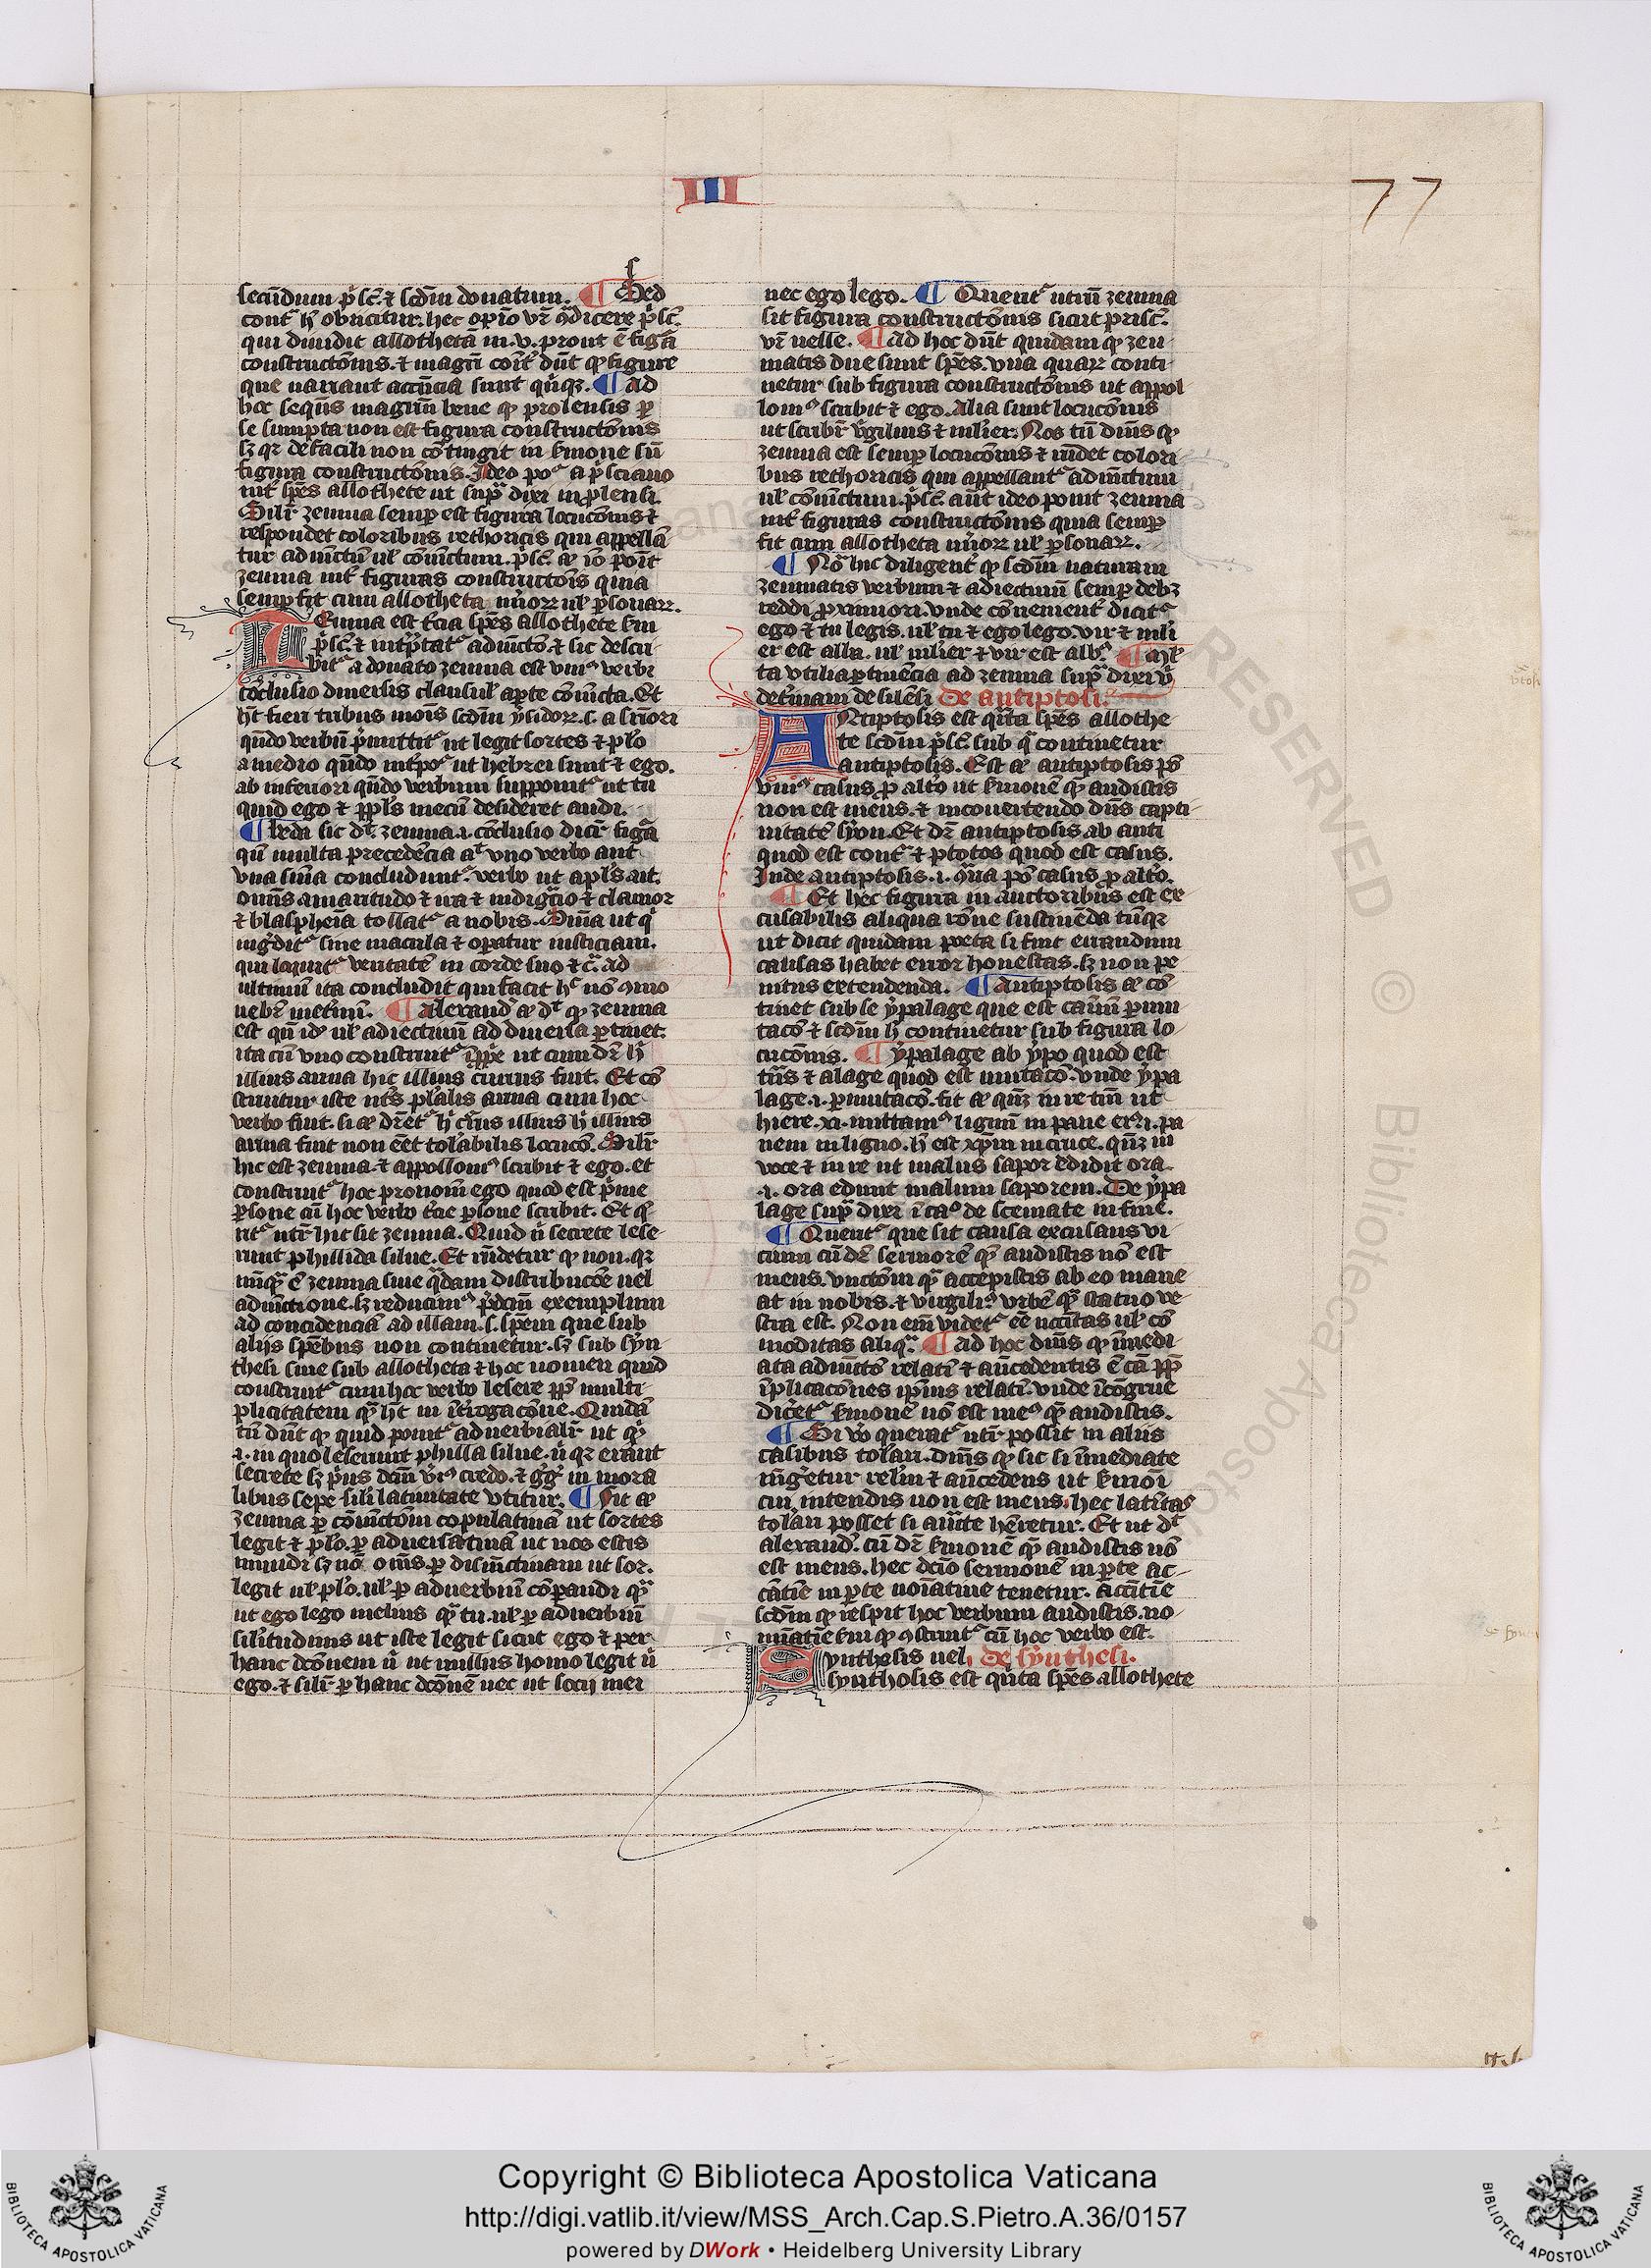 III
77
secundum p̃sc̃. ⁊ scdm̃ donatum. ¶ Sed
contᵃ h̃ obicitur. hec opĩo vr̃ ꝯtͣdicere p̃sc̃.
qui diuidit allotheta in .v. prout ẽ figͣa
constructõnis. ⁊ magr̃i dñt ꝙ figure
que uariant accñcia sunt qͥnqꝫ. ¶ Ad
hoc sequẽs magr̃um bene ꝙ prolensis ꝑ
se sumpta non est figura constructõnis
sꝫ qꝛ de facili non cõtingit in sermone sñ
figura constructõnis. Ideo a p̃sciano
int̃ sp̃es allothete ut supͣ dixi in prolensi.
Silr̃ zeuma semꝑ est figura locucõnis ⁊
respondet coloribus rethoricis qui appellã
tur adiũctũ ul̃ cõiunctum. p̃sc̃. ponit
zeuma int̃ figuras constructõis quia
semꝑ fit cum allotheta nũoꝝ ul̃ ꝑsonaꝝ.
Zeuma est t̃cia sp̃es allothete
p̃sc̃. ⁊ int̃p̃tatᷣ adiũcto ⁊ sic descri
bitᷣ a donato zeuma est vniꝰ verbi
cõclusio diuersis clausul̃ aꝑte cõiuncta. Et
h̃t fieri tribus modis scdm̃ ysidoꝝ .s. a suꝑiori
qñdo verbũ p̃mittitᷣ ut legit sortes ⁊ pl̃o
a medio qñdo int̃poᷣ ut hebrei sunt ⁊ ego.
ab inferiori qñdo verbum supponitᷣ ut tu
quid ego ⁊ ppl̃s mecũ desideret audi.
¶ beda sic dt̃. zeuma .i. cõclusio dicitᷣ figͣa
qñ multa precedẽcia aut uno verbo aut
vna sñia concludunt᷑. verbo ut apl̃s ait.
om̃s amaritudo ⁊ ira ⁊ indigͣcio ⁊ clamor
⁊ blasphemia tollatᷣ a nobis. Sñia ut qͥ
ingᷣditᷣ sine macula ⁊ operatur iusticiam.
qui loquitᷣ veritatẽ in corde suo ⁊ cͣ. ad
ultimũ ita concludit qui facit hᵉ nõ ꝯmo
uebitᷣ inet̃num. ¶ Alexandᷣ dᵗ ꝙ zeuma
est qñ idᵉ ul̃ adiectiuũ ad diuersa ꝑtinet.
ita cũ vno construitᷣ ut cum dr̃ h̃
illius arma hic illius currus fuit. Et cõ
struitur iste pl̃alis arma cum hoc
verbo fuit. h̃ illius h̃ illius
arma fuit non eẽt tol̃abilis locucõ. Silr̃
hic est zeuma. ⁊ appolloniꝰ scribit ⁊ ego. et
construitᷣ hoc pronomẽ ego quod est p̃me
ꝑsone cũ hoc verbo t̃cie ꝑsone scribit. Et qͥ
ritᷣ utrũ hic sit zeuma. Quid ñ secrete lese
runt phillida silue. Et rñdetur ꝙ non. qꝛ
nũqͣ ẽ zeuma sine qͣdam distribucõe uel
adiũctione. sꝫ reducimꝰ p̃dictũ exemplum
ad concidenciã ad illam .s. sp̃em que sub
alijs sp̃ebus non continetur. sꝫ sub syn
thesi siue sub allotheta ⁊ hoc nomen quid
construitᷣ cum hoc verbo lesere ꝓpt̃ multi
plicitatem qͣ h̃t in int̃rogacõne. Quidã
tñ dñt ꝙ quid ponitᷣ aduerbialiter ut
.i. in quo leserunt philla silue. ñ qꝛ erant
secrete sꝫ p̃us dictũ verius credo. ⁊ gͬg̃ in mora
libus sepe sil̃i latinitate vtitur. ¶ Sit
zeuma ꝑ cõiunctõm copulatiuã ut sortes
legit ⁊ pl̃o. ꝑ aduersatiuã ut uos estis
mundi sꝫ nõ om̃s. ꝑ disiũctiuam ut sor.
legit ul̃ pl̃o. ul̃ ꝑ aduerbiũ cõparandi qͣ
ut ego lego melius qͣ tu. ul̃ ꝑ aduerbiũ
sil̃itudinis ut iste legit sicut ego ⁊ per
hanc dcõnem ñ ut nullus homo legit ñ
ego. ⁊ silr̃ ꝑ hanc dcõnẽ nec ut socij mei
nec ego lego. ¶ Queritᷣ utrũ zeuma
sit figura constructõnis sicut prisc̃.
vr̃ uelle. ¶ Ad hoc dñt quidam ꝙ zeu
matis due sunt sp̃es. vna quaꝝ conti
netur sub figura constructõnis ut appol
loniꝰ scribit ⁊ ego. Alia sunt locucõnis
ut scribitᷣ v̓gilius ⁊ mulier. Nos tñ dicimꝰ ꝙ
zeuma est semꝑ locucõnis ⁊ rñdet colori
bus rethoricis qui appellantᷣ adiũctum
ul̃ cõiunctum. p̃sc̃. aut̃ ideo ponit zeuma
int̃ figuras constructõnis quia semꝑ
fit cum allotheta nũoꝝ ul̃ ꝑsonaꝝ.
¶ Nota hic diligent̃ ꝙ scdm̃ naturam
zeumatis verbum ⁊ adiectiuũ semꝑ debꝫ
reddi ꝓximiori. vnde cõuenient̃ dicitᷣ
ego ⁊ tu legis. ul̃ tu ⁊ ego lego. vir ⁊ muli
er est alba. ul̃ mulier ⁊ vir est albꝰ. ¶
ta vtilia ꝑtinẽcia ad zeuma supͣ dixi
det̃minam de silẽsi De antiptosi.
Antiptosis est qͣrta sp̃es allothe
te scdm̃ p̃sc̃. sub qͣ continetur
antiptosis. Est antiptosis
vniꝰ casus ꝓ alt̃o ut sermonẽ qͣ audistis
non est meus. ⁊ in conuertendo dñs capti
uitatẽ syon. Et dr̃ antiptosis ab anti
quod est contᵃ ⁊ ptotos quod est casus.
Inde antiptosis .i. casus ꝓ alt̃o.
¶ Et hec figura in auctoribus est ex
cusabilis aliqua rõne sustinẽda
ut dicit quidam poeta si fuit errandum
causas habet error honestas. sꝫ non pe
nitus extendenda. ¶ Antiptosis cõ
tinet sub se ypalage que est casuũ permu
tacõ ⁊ scdm̃ h̃ continetur sub figura lo
cucõnis. ¶ ypalage ab ypo quod est
⁊ alage quod est mutacõ. vnde ypa
lage .i. permutacõ. fit in re tm̃ ut
hiere. xi. mittamꝰ lignũ in pane eiꝰ .i. pa
nem in ligno. h̃ est xp̃m in cruce. in
voce ⁊ in re ut malus sapor edidit ora.
.i. ora edunt malum saporem. De ypa
lage supͣ dixi de scemate in fine.
¶ Queritᷣ que sit causa excusans vi
cium cũ dr̃ sermonẽ qͣ audistis nõ est
meus. vnctõm qͣ accepistis ab eo mane
at in nobis. ⁊ virgiliꝰ. vrbẽ qͣ statuo ve
stra est. Non eñ videtᷣ eẽ necc̃itas ul̃ cõ
moditas aliqͣ. ¶ Ad hoc dicimꝰ ꝙ inmedi
ata adiũcto relati ⁊ añcedentis ẽ cã ꝓpt̃
implicacõnes ipsius relati. vnde incõgrue
dicetᷣ sermonẽ nõ est meꝰ qͣ audistis.
¶ Si vͦ queratᷣ utrũ possit in aliis
casibus tol̃ari. dicimꝰ ꝙ sic si inmediate
iũgetur relatiuũ ⁊ añcedens ut sermoni
cui intendis non est meus. hec latĩtas
tol̃ari posset si haberetur. Et ut dᵗ
alexand̓. cũ dr̃ sermonẽ qͣ audistis nõ
est meus. hec dcõ sermonẽ in parte ac-
catiue in parte noĩatiue tenetur. accatiue
scdm̃ ꝙ respicit hoc verbum audistis. no-
minatiue ꝙ ꝯstruitᷣ cũ hoc verbo est.
Synthesis uel. De synthesi.
synthosis est qͥnta sp̃es allothete
RESERVED © Biblioteca Apostol
Copyright © Biblioteca Apostolica Vaticana
http://digi.vatlib.it/view/MSS_Arch.Cap.S.Pietro.A.36/0157
powered by DWork • Heidelberg University Library
BIBLIOTECA APOSTOLICA VATICANA
BIBLIOTECA APOSTOLICA VATICANA